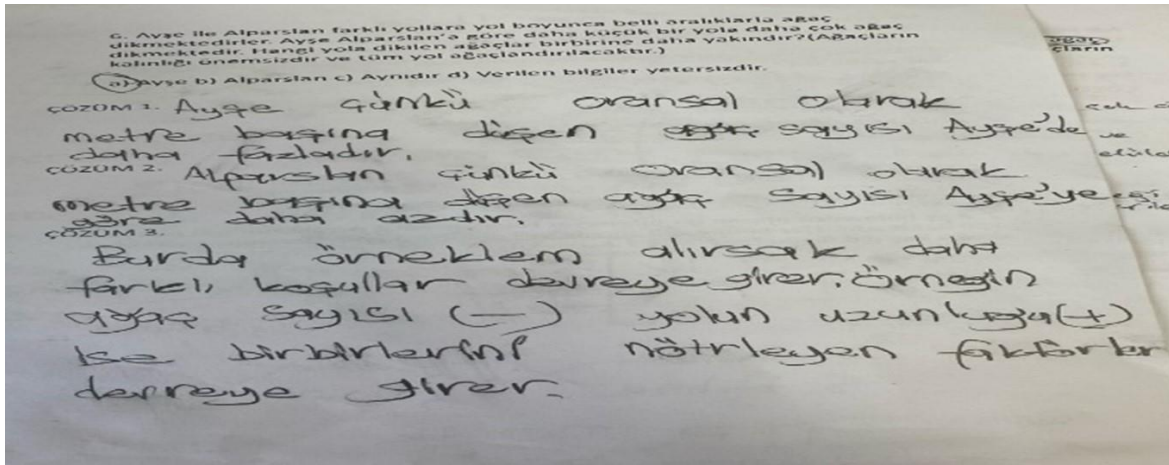 6. Ayşe ile Alparslan farklı yollara yol boyunca belli aralıklarla ağaç
dikmektedirler. Ayşe Alparslan'a göre daha küçük bir yola daha çok ağaç
dikmektedir. Hangi yola dikilen ağaçlar birbirine daha yakındır?(Ağaçların
kalınlığı önemsizdir ve tüm yol ağaçlandırılacaktır.)
a) Ayşe b) Alparslan c) Aynıdır d) Verilen bilgiler yetersizdir.
ÇÖZÜM 1. Ayşe çünkü oransal olarak
metre başına düşen sayısı Ayşe'de
daha fazladır.
ÇÖZÜM 2. Alparslan çünkü oransal olarak
metre başına düşen ağaç sayısı Ayşe'ye
göre daha azdır.
ÇÖZÜM 3.
Burda örneklem alırsak daha
farklı koşullar devreye girer. Örneğin
ağaç sayısı (-) yolun uzunluğu (+)
ise birbirlerini nötrleyen faktörler
devreye girer.
ağaç
çların
ve